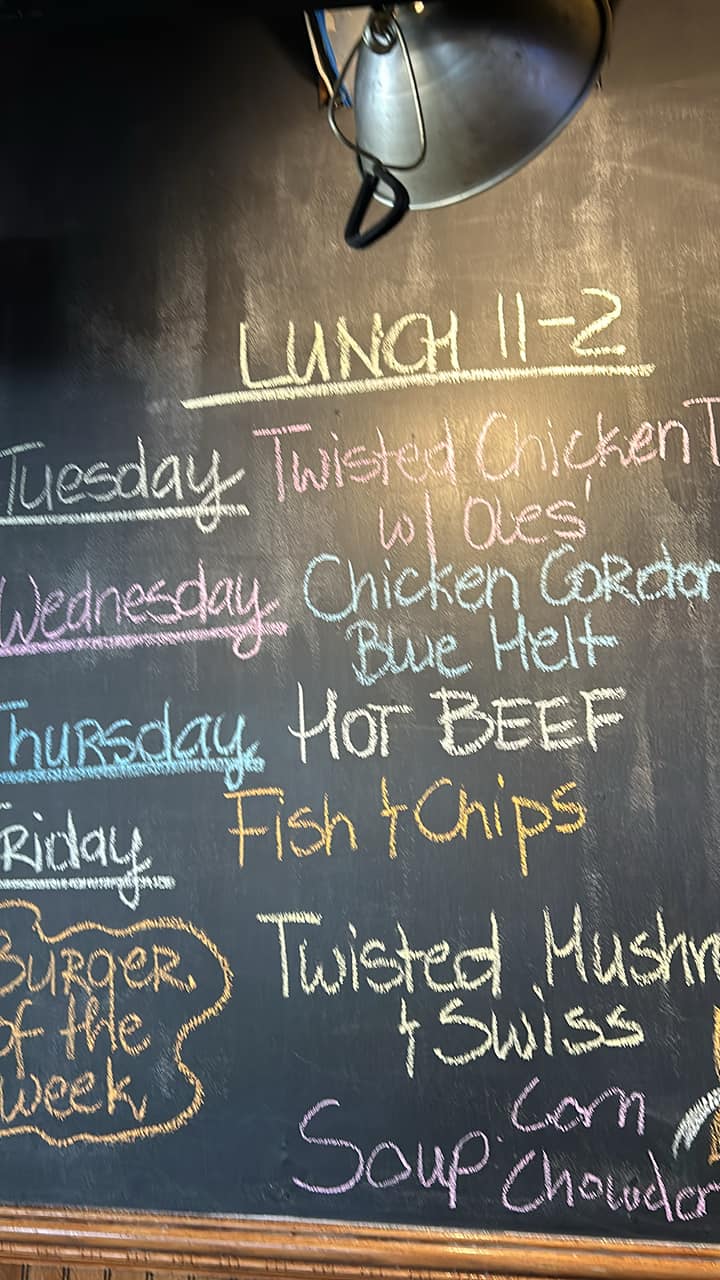 LUNCH 11-2
Tuesday Twisted Chicken T
w/ Oles'
Wednesday Chicken Cordon
Blue Melt
Thursday HOT BEEF
Friday Fish & Chips
Burger of the week
Twisted Mushr
& Swiss
Soup: Corn
Chowder